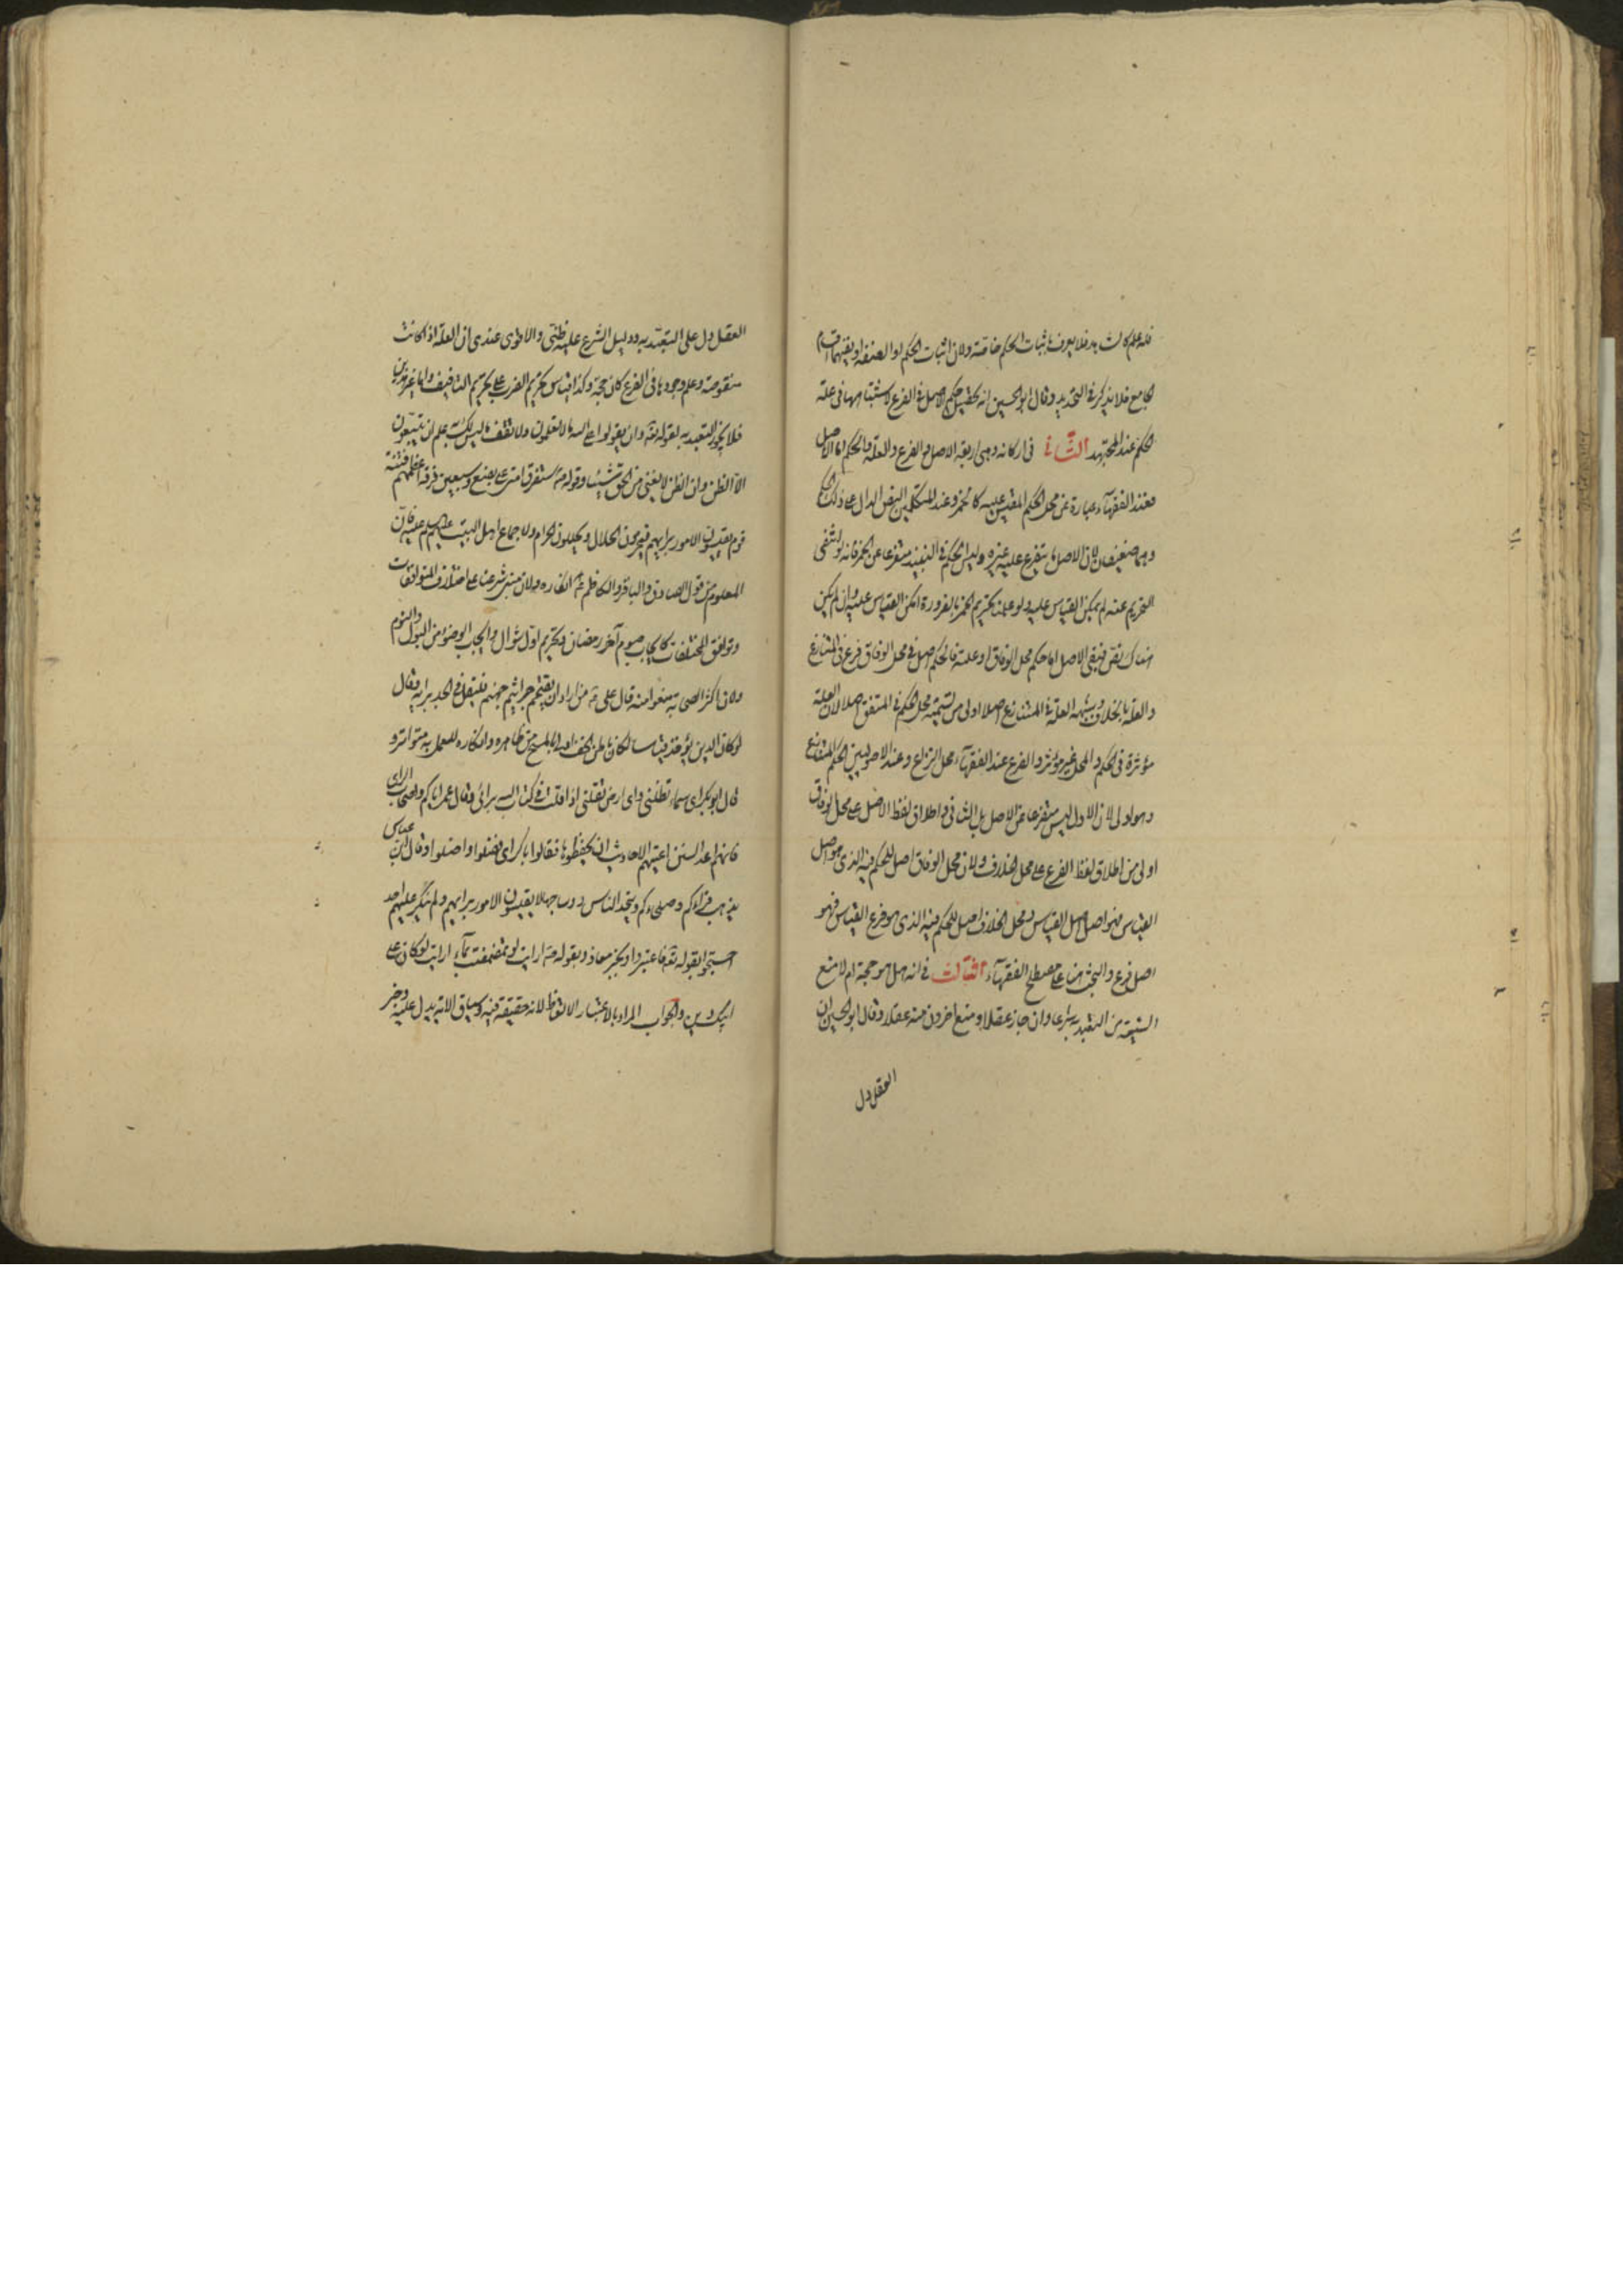 فلا يعرف باثبات الحكم خاصة ولان اثبات الحكم او الصفة او نفيهما قسم
الجامع فلا يذكر في التحديد وقال ابو الحسين انه تحصيل حكم الاصل في الفرع لاشتباههما في علة
الحكم عند المجتهد الثاني في اركانه وهي اربعة الاصل والفرع والعلة والحكم اما الاصل
فعند الفقهاء عبارة عن محل الحكم المقيس عليه كالخمر وعند المتكلمين النص الدال على ذلك الحكم
وهما ضعيفان لان الاصل ما يتفرع عليه غيره وليس الحكم في النبيذ متفرعا عن الخمر فانه لو انتفى
التحريم عنه لم يمكن القياس عليه ولو علمنا تحريم الخمر بالضرورة امكن القياس عليه وان لم يكن
هناك نص فبقي الاصل اما حكم محل الوفاق او علته فالحكم اصل في محل الوفاق فرع في المتنازع
والعلة بالخلاف وتسمية العلة في المتنازع اصلا اولى من تسمية محل الحكم في المتفق اصلا لان العلة
مؤثرة في الحكم والمحل غير مؤثر والفرع عند الفقهاء محل النزاع وعند الاصوليين الحكم المتنازع
وهو اولى لان الاول ليس متفرعا عن الاصل بل الثاني واطلاق لفظ الاصل على محل الوفاق
اولى من اطلاق لفظ الفرع على محل الخلاف ولان محل الوفاق اصل للحكم فيه الذي هو اصل
القياس فهو اصل اصل القياس ومحل الخلاف اصل للحكم فيه الذي هو فرع القياس فهو
اصل فرع والبحث هنا على مصطلح الفقهاء الثالث في انه هل هو حجة ام لا منع
الشيعة من التعبد به شرعا وان جاز عقلا ومنع اخرون منه عقلا وقال ابو الحسين ان
العقل دل
العقل دل على التعبد به ودليل الشرع عليه ظني والاقوى عندي ان العلة اذا كانت
منصوصة وعلم وجودها في الفرع كان حجة وكذا قياس تحريم الضرب على تحريم التافيف واما غير هذين
فلا يجوز التعبد به لقوله تعه وان تقولوا على الله ما لا تعلمون ولا تقف ما ليس لك به علم ان يتبعون
الا الظن وان الظن لا يغني من الحق شيئا وقوله ص ستفرق امتي على بضع وسبعين فرقة اعظمهم فتنة
قوم يقيسون الامور برايهم فيحرمون الحلال ويحللون الحرام ولاجماع اهل البيت عليهم السلم عليه فان
المعلوم من قول الصادق والباقر والكاظم ع انكاره ولان مبنى شرعنا على اختلاف المتوافقات
وتوافق المختلفات كايجاب صوم آخر رمضان وتحريم اول شوال وايجاب الوضوء من البول والنوم
ولان اكثر الصحابة منعوا منه قال علي ع من اراد ان يقتحم جراثيم جهنم فليقل في الجد برايه وقال
لو كان الدين يؤخذ قياسا لكان باطن الخف اولى بالمسح من ظاهره وانكاره للعمل به متواتر و
قال ابو بكر اي سماء تظلني واي ارض تقلني اذا قلت في كتاب الله برائي وقال عمر اياكم واصحاب الراي
فانهم اعداء السنن اعيتهم الاحاديث ان يحفظوها فقالوا بالراي فضلوا واضلوا وقال ابن عباس
يذهب قراؤكم وصلحاءكم ويتخذ الناس رؤسا جهالا يقيسون الامور برايهم ولم ينكر عليهم احد
احتجوا بقوله تعه فاعتبروا وبخبر معاذ وبقوله ص ارايت لو تمضمضت بماء ارايت لو كان على
ابيك دين والجواب المراد بالاعتبار الاتعاظ لانه حقيقة فيه وسياق الاية يدل عليه وخبر